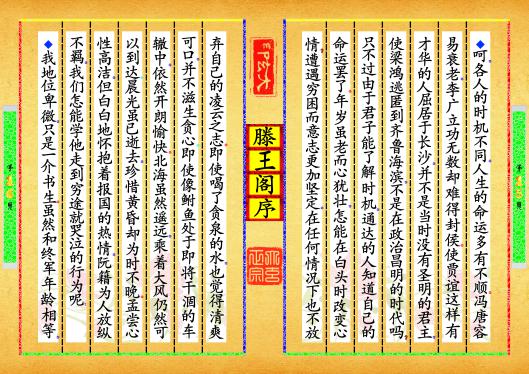 ◆呵各人的时机不同人生的命运多有不顺冯唐容
易衰老李广立功无数却难得封侯使贾谊这样有
才华的人屈居于长沙并不是当时没有圣明的君主
使梁鸿逃匿到齐鲁海滨不是在政治昌明的时代吗
只不过由于君子能了解时机通达的人知道自己的
命运罢了年岁虽老而心犹壮怎能在白头时改变心
情遭遇穷困而意志更加坚定在任何情况下也不放
滕王阁序
弃自己的凌云之志即使喝了贪泉的水也觉得清爽
可口并不滋生贪心即使像鲋鱼处于即将干涸的车
辙中依然开朗愉快北海虽然遥远乘着大风仍然可
以到达晨光虽已逝去珍惜黄昏却为时不晚孟尝心
性高洁但白白地怀抱着报国的热情阮籍为人放纵
不羁我们怎能学他走到穷途就哭泣的行为呢
◆我地位卑微只是一介书生虽然和终军年龄相等